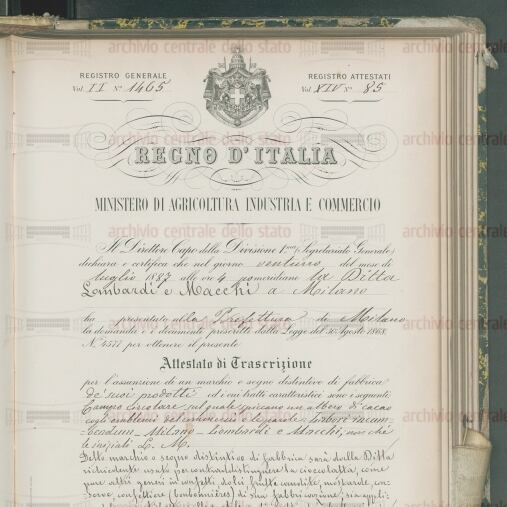 archivio centrale dello stato
REGISTRO GENERALE
Vol. II Nº 1465
REGISTRO ATTESTATI
Vol. XIV Nº 85
REGNO D'ITALIA
MINISTERO DI AGRICOLTURA INDUSTRIA E COMMERCIO
Il Direttore Capo della Divisione 1ma (Segretariato Generale)
dichiara e certifica che nel giorno ventuno del mese di
luglio 1887 alle ore 4 pomeridiane la Ditta
Lombardi e Macchi a Milano
ha presentato alla Prefettura di Milano
la domanda e i documenti prescritti dalla Legge del 30 Agosto 1868
N. 4577 per ottenere il presente
Attestato di Trascrizione
per l'assunzione di un marchio o segno distintivo di fabbrica
de' suoi prodotti ed i cui tratti caratteristici sono i seguenti:
Campo circolare sul quale spiccano un albero di cacao
cogli emblemi del commercio e leggende: Labore
Milano - Lombardi e Macchi, non che
le iniziali L. M.
Detto marchio o segno distintivo di fabbrica sarà dalla Ditta
richiedente usato per contraddistinguere la cioccolatta, come
pure altri generi in confetti, dolci, frutte candite, mostarde, con-
serve, confetture (bonbonnières) di sua fabbricazione; sia